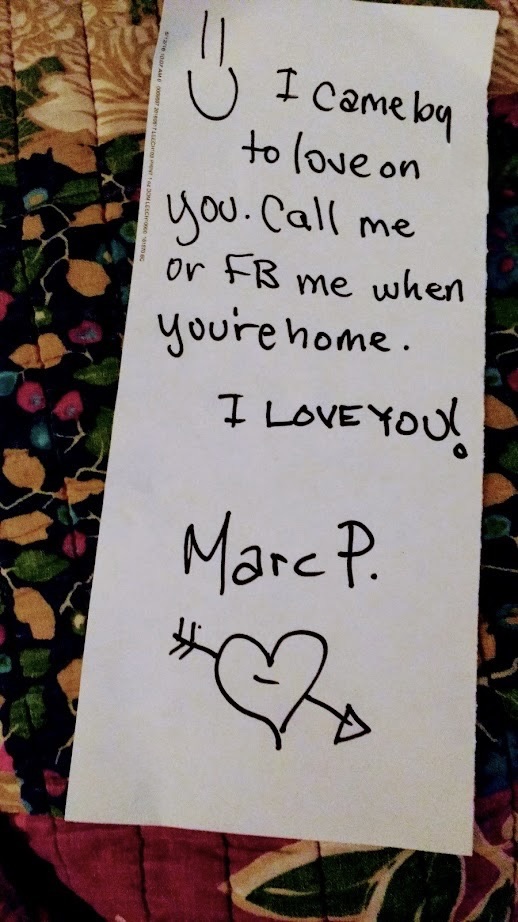 I came by
to love on
you. Call me
or FB me when
you're home.
I LOVE YOU!
Marc P.